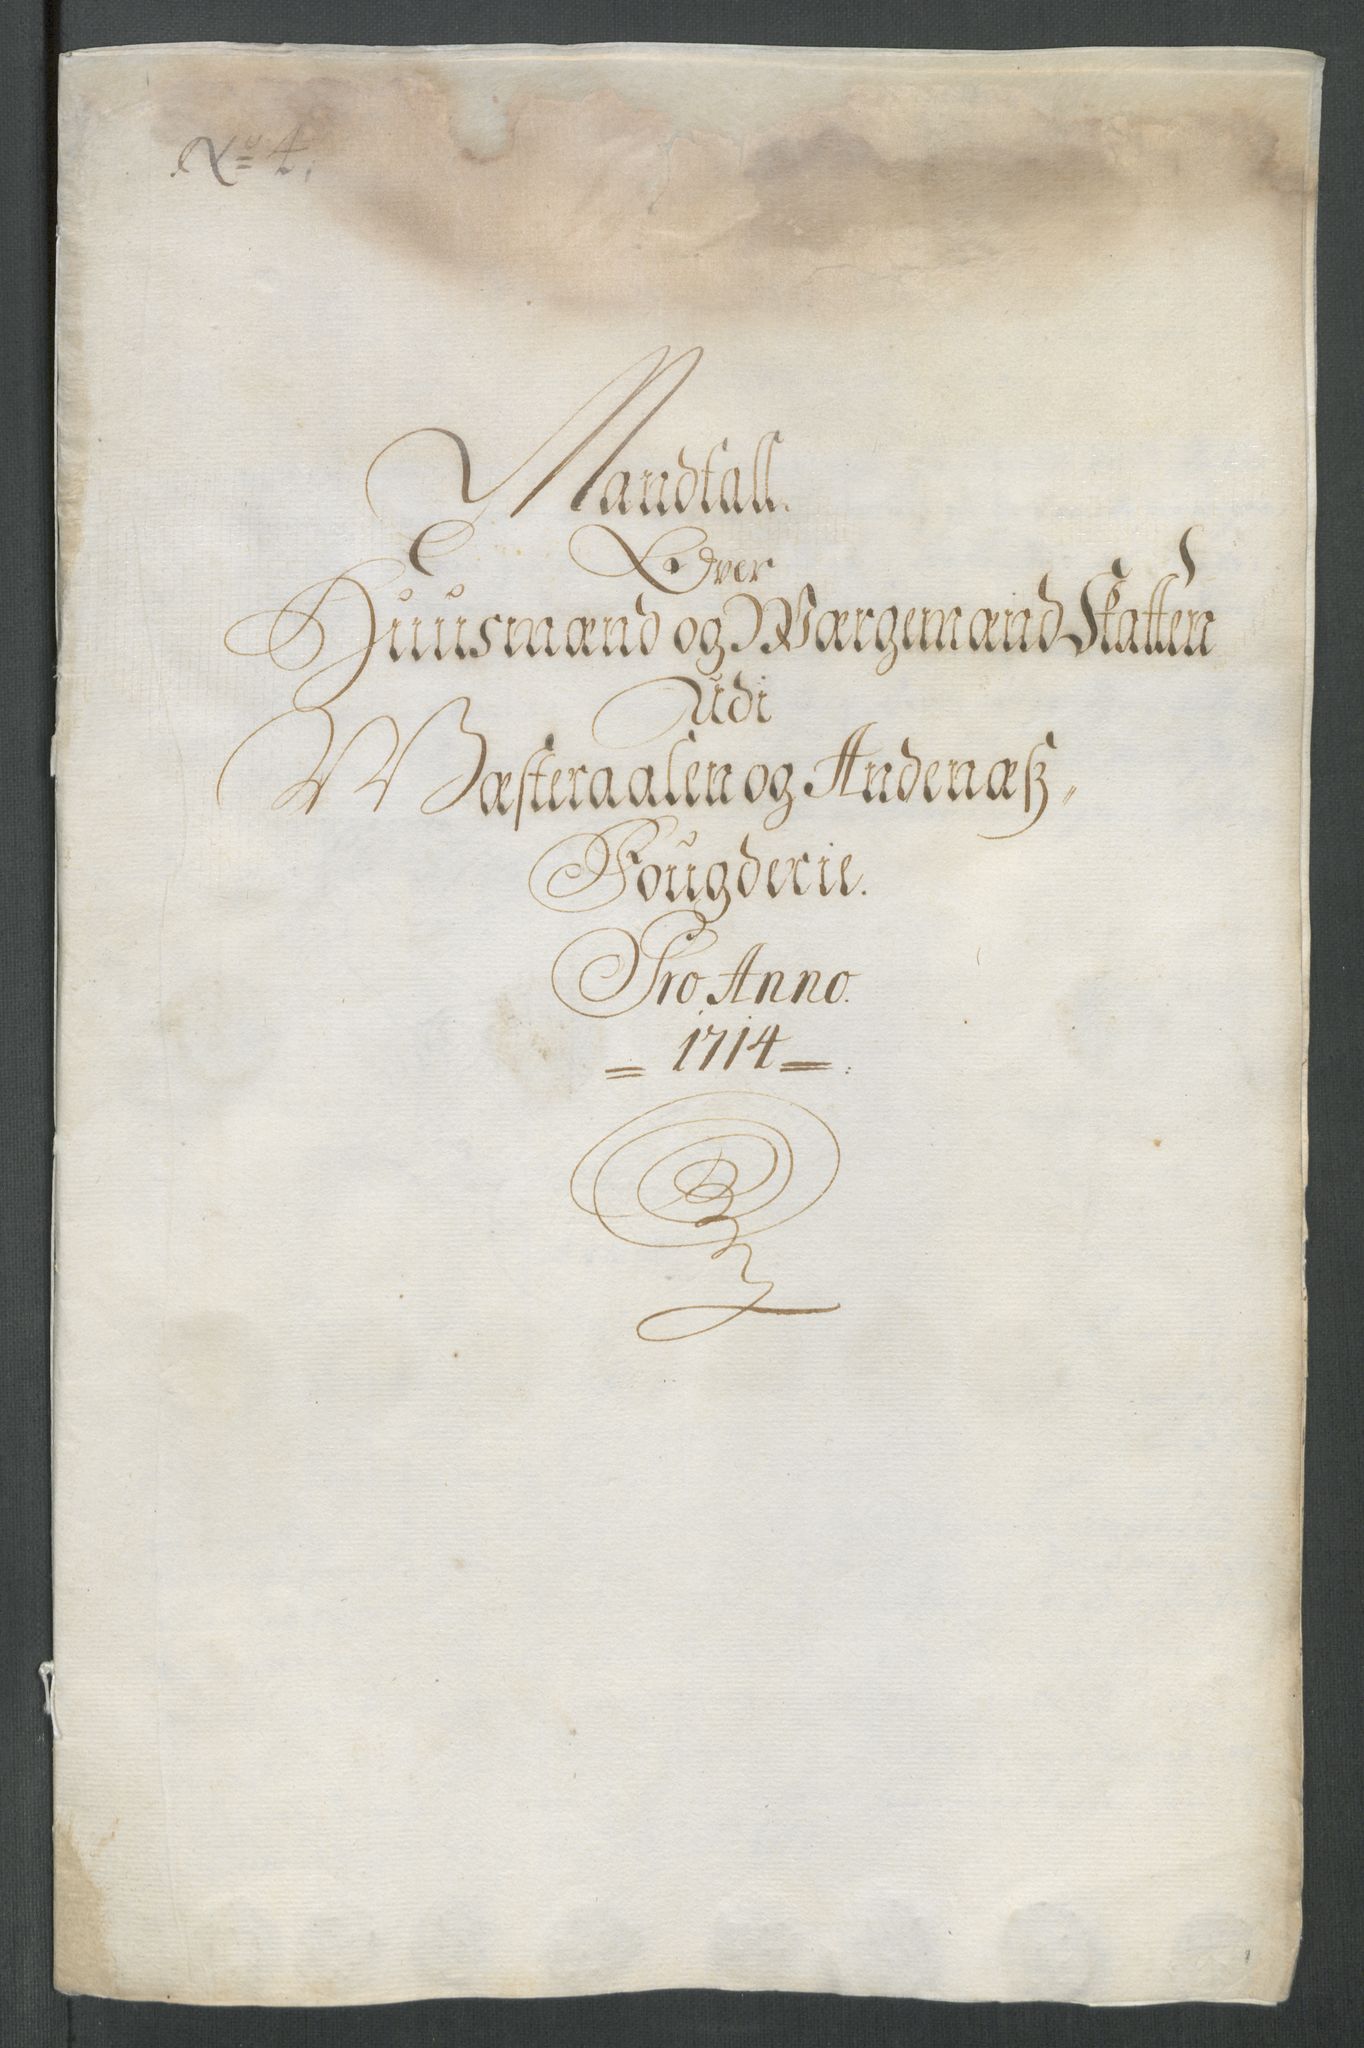 No 4.
Mandtall.
Over
Huusmænd og Wærgemænd Skatten
Udi
Wæsteraalen og Andenæß
Fougderie.
Pro Anno.
1714